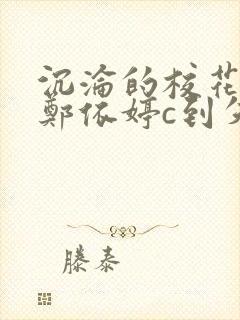 沉淪的校花
鄭依婷c到
滕泰